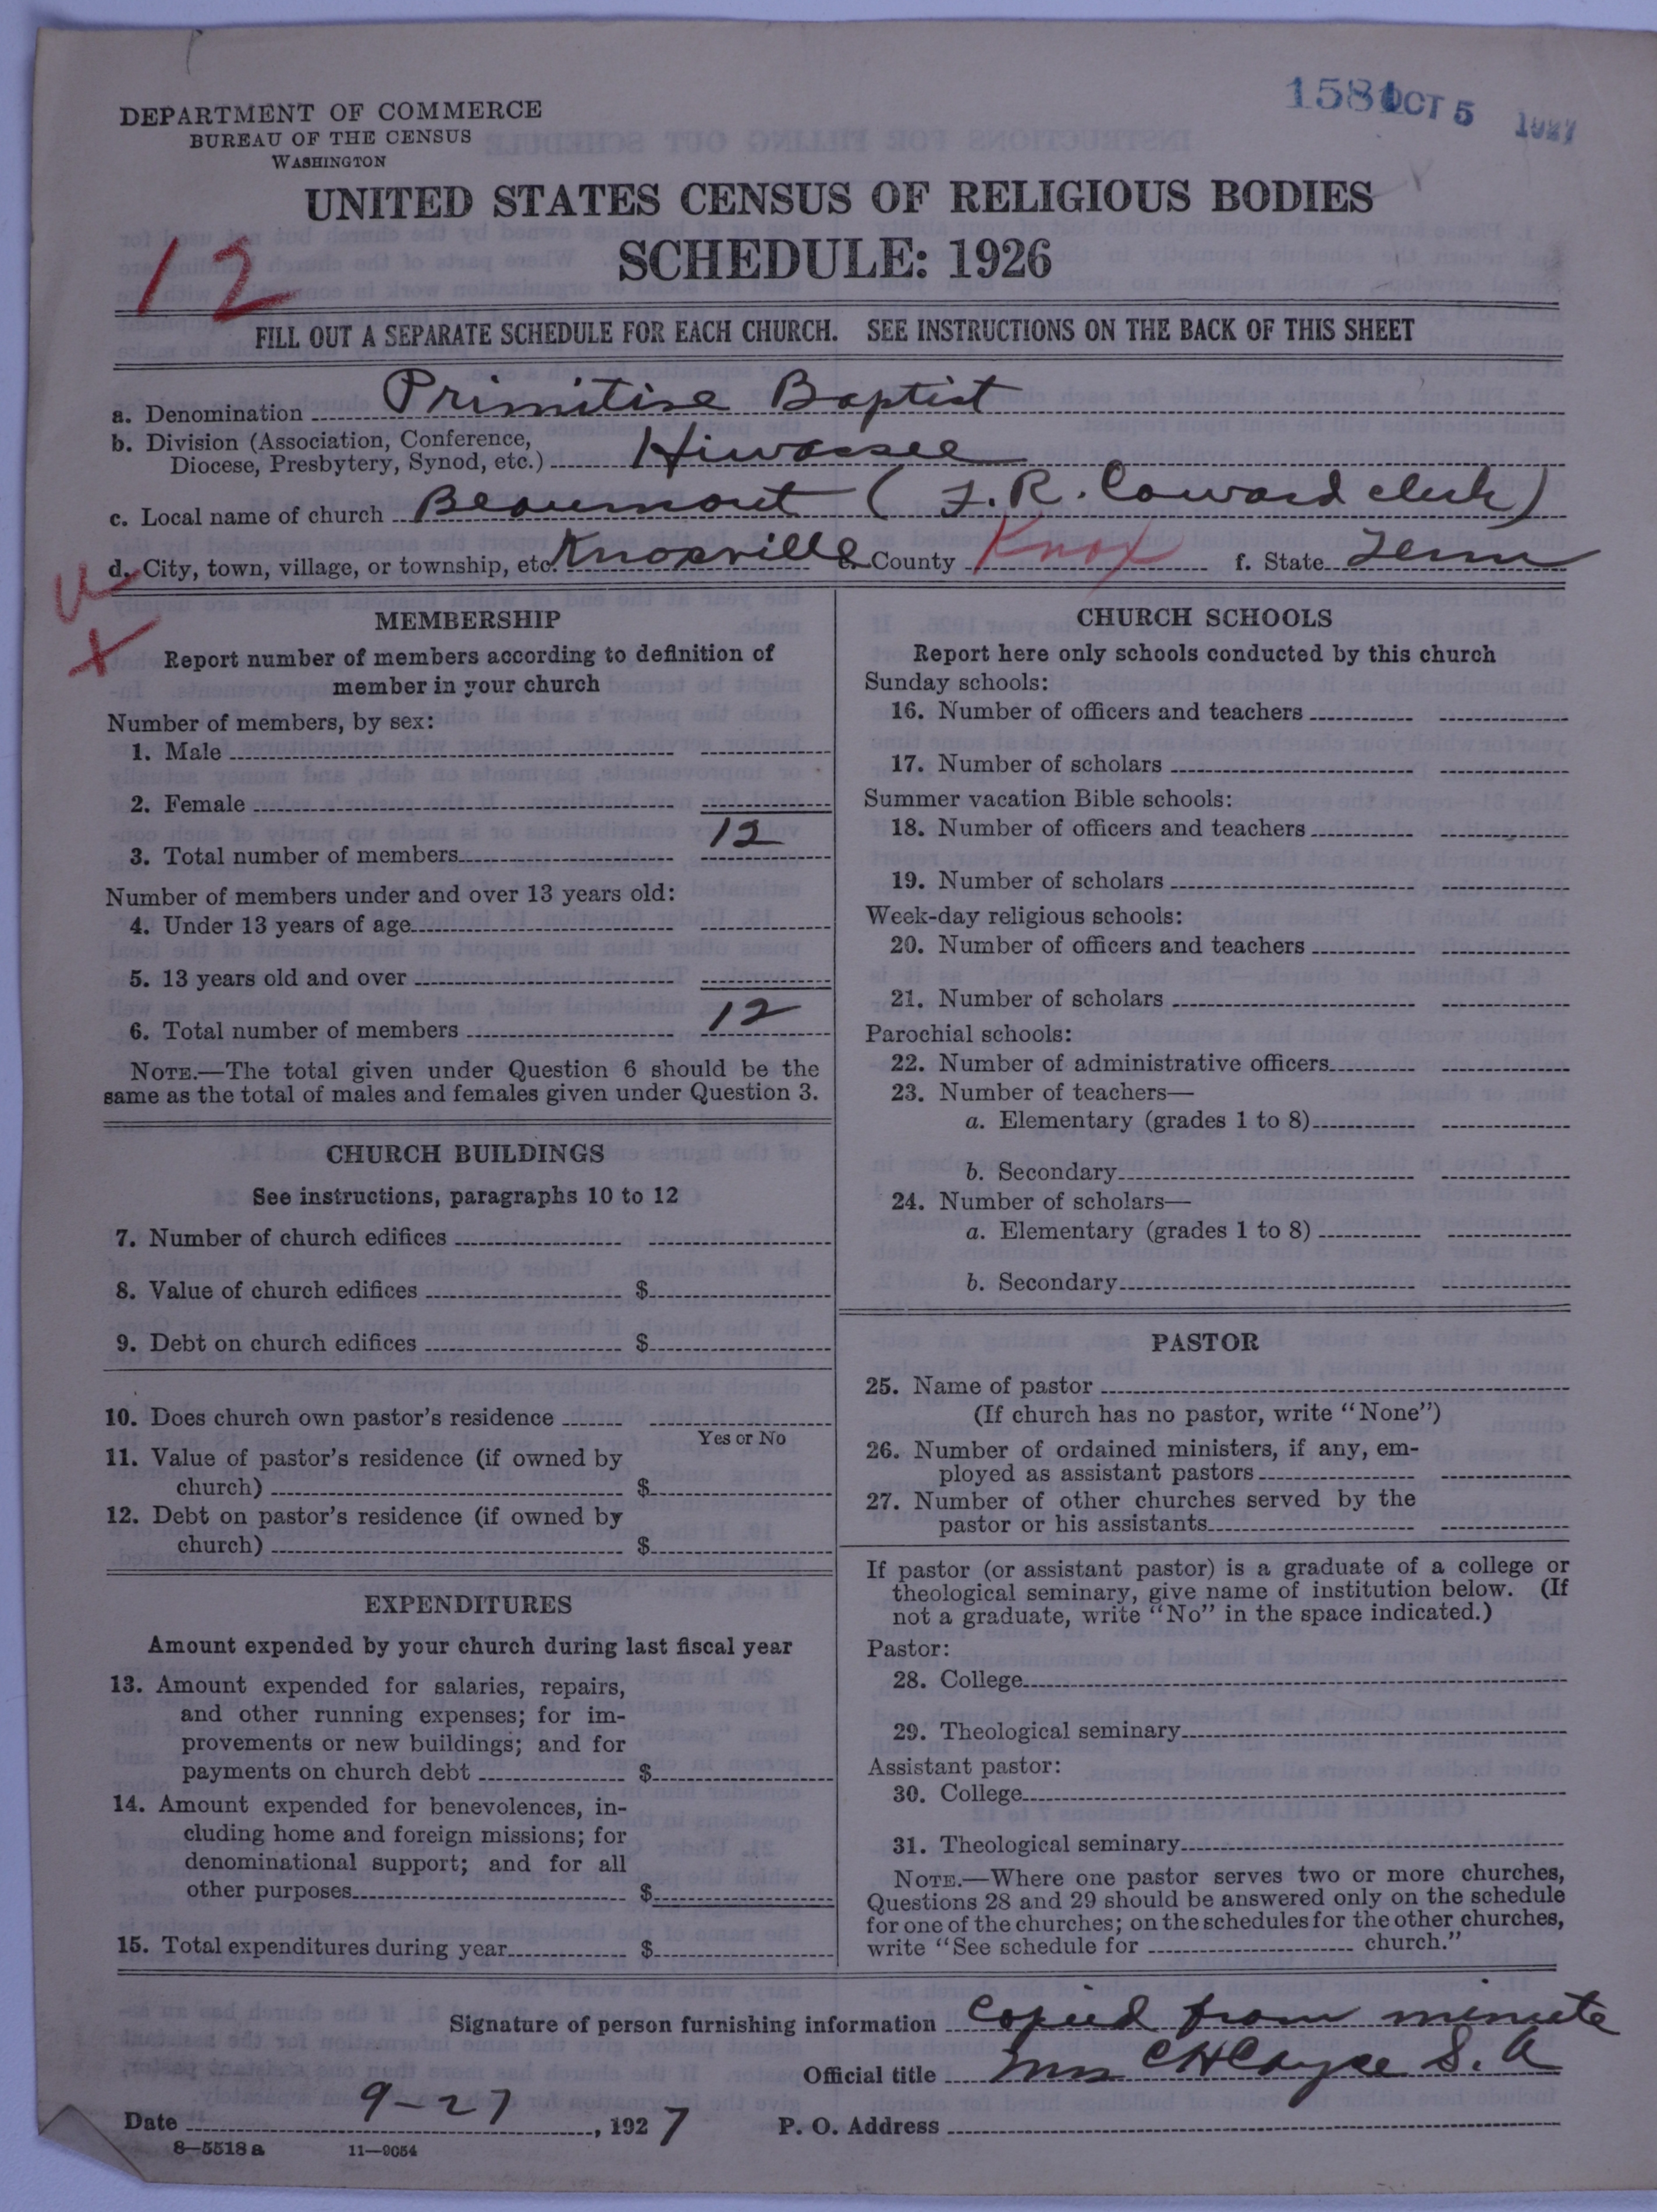 1581 OCT 5 1927
DEPARTMENT OF COMMERCE
BUREAU OF THE CENSUS
WASHINGTON
UNITED STATES CENSUS OF RELIGIOUS BODIES
SCHEDULE: 1926
12
FILL OUT A SEPARATE SCHEDULE FOR EACH CHURCH. SEE INSTRUCTIONS ON THE BACK OF THIS SHEET
a. Denomination Primitive Baptist
b. Division (Association, Conference,
Diocese, Presbytery, Synod, etc.) Hiwassee
c. Local name of church Beaumont ( F. R. Coward clerk)
d. City, town, village, or township, etc. Knoxville e. County Knox f. State Tenn
MEMBERSHIP
Report number of members according to definition of
member in your church
Number of members, by sex:
1. Male
2. Female
3. Total number of members 12
Number of members under and over 13 years old:
4. Under 13 years of age
5. 13 years old and over
6. Total number of members 12
NOTE.—The total given under Question 6 should be the
same as the total of males and females given under Question 3.
CHURCH BUILDINGS
See instructions, paragraphs 10 to 12
7. Number of church edifices
8. Value of church edifices $
9. Debt on church edifices $
10. Does church own pastor's residence
Yes or No
11. Value of pastor's residence (if owned by
church) $
12. Debt on pastor's residence (if owned by
church) $
EXPENDITURES
Amount expended by your church during last fiscal year
13. Amount expended for salaries, repairs,
and other running expenses; for im-
provements or new buildings; and for
payments on church debt $
14. Amount expended for benevolences, in-
cluding home and foreign missions; for
denominational support; and for all
other purposes $
15. Total expenditures during year $
CHURCH SCHOOLS
Report here only schools conducted by this church
Sunday schools:
16. Number of officers and teachers
17. Number of scholars
Summer vacation Bible schools:
18. Number of officers and teachers
19. Number of scholars
Week-day religious schools:
20. Number of officers and teachers
21. Number of scholars
Parochial schools:
22. Number of administrative officers
23. Number of teachers—
a. Elementary (grades 1 to 8)
b. Secondary
24. Number of scholars—
a. Elementary (grades 1 to 8)
b. Secondary
PASTOR
25. Name of pastor
(If church has no pastor, write "None")
26. Number of ordained ministers, if any, em-
ployed as assistant pastors
27. Number of other churches served by the
pastor or his assistants
If pastor (or assistant pastor) is a graduate of a college or
theological seminary, give name of institution below. (If
not a graduate, write "No" in the space indicated.)
Pastor:
28. College
29. Theological seminary
Assistant pastor:
30. College
31. Theological seminary
NOTE.—Where one pastor serves two or more churches,
Questions 28 and 29 should be answered only on the schedule
for one of the churches; on the schedules for the other churches,
write "See schedule for church."
Signature of person furnishing information Copied from minute
Official title Mrs C H Cayce S. A
Date 9-27, 1927 P. O. Address
8—5518 a 11—9054